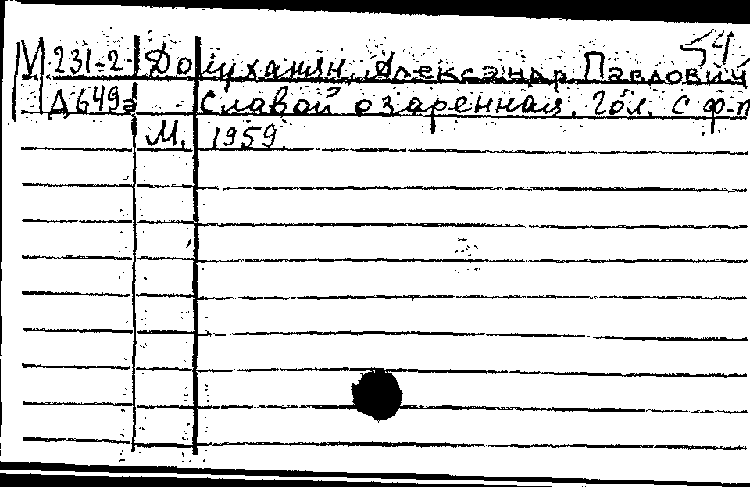 54
М 231-2 Долуханян, Александр Павлович
Д649а Славой озаренная. Гол. с ф-п
М. 1959.